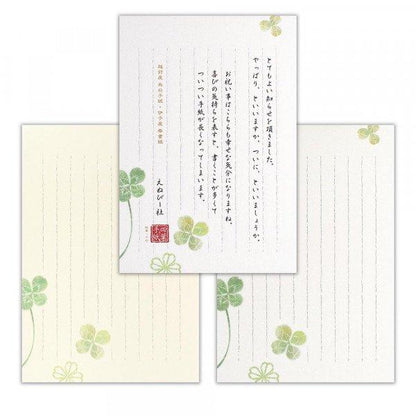 とてもよい知らせを頂きました。
やっぱり、といいますか、ついに、といいましょうか。
お祝い事はこちらも幸せな気分になりますね。
喜びの気持ちを表すと、書くことが多くて
ついつい手紙が長くなってしまいます。
えぬびー社